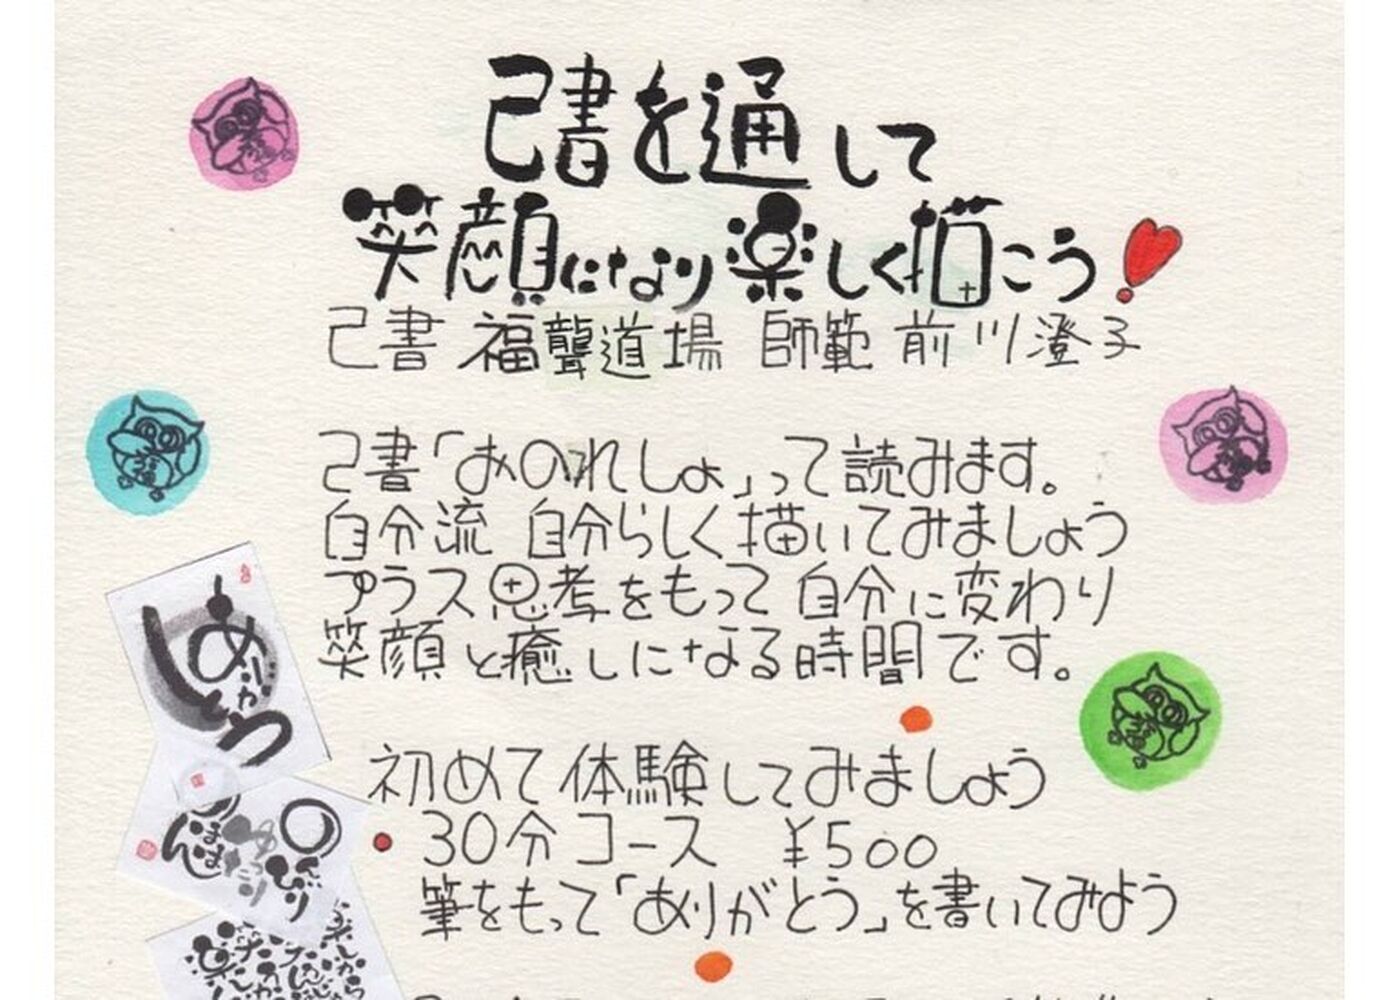 己書を通して
笑顔になり楽しく描こう
己書 福聾道場 師範 前川澄子
己書「おのれしょ」って読みます。
自分流 自分らしく描いてみましょう
プラス思考をもって自分に変わり
笑顔と癒しになる時間です。
初めて体験してみましょう
30分コース ¥500
筆をもって「ありがとう」を書いてみよう
ありがとう
のんびり
ゆったり